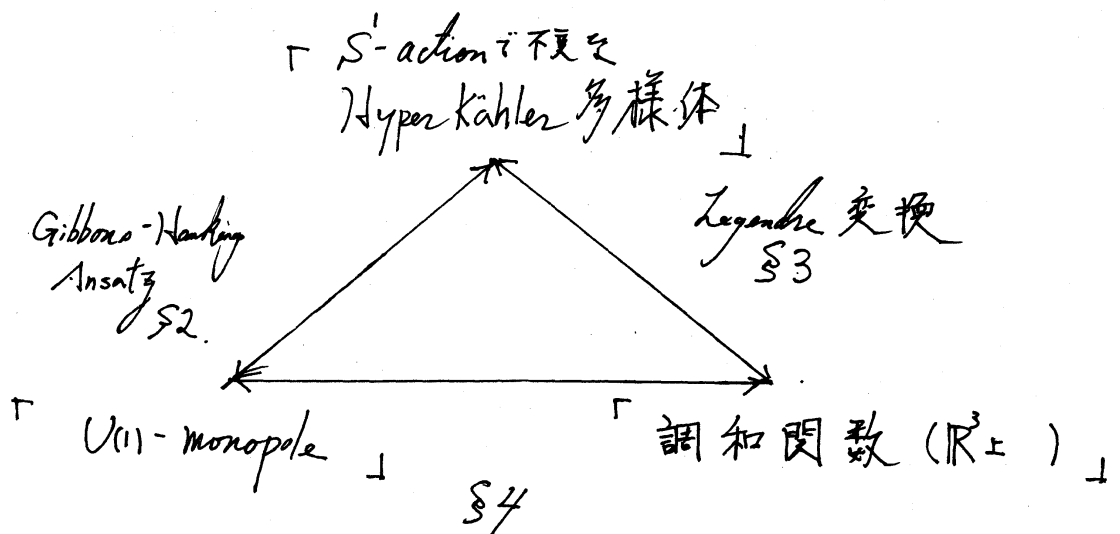 「 S¹-action で不変な
Hyper Kähler 多様体 」
Gibbons-Hawking
Ansatz
§2.
Legendre 変換
§3
「 U(1)-monopole 」
「 調和関数 (R³上 ) 」
§4